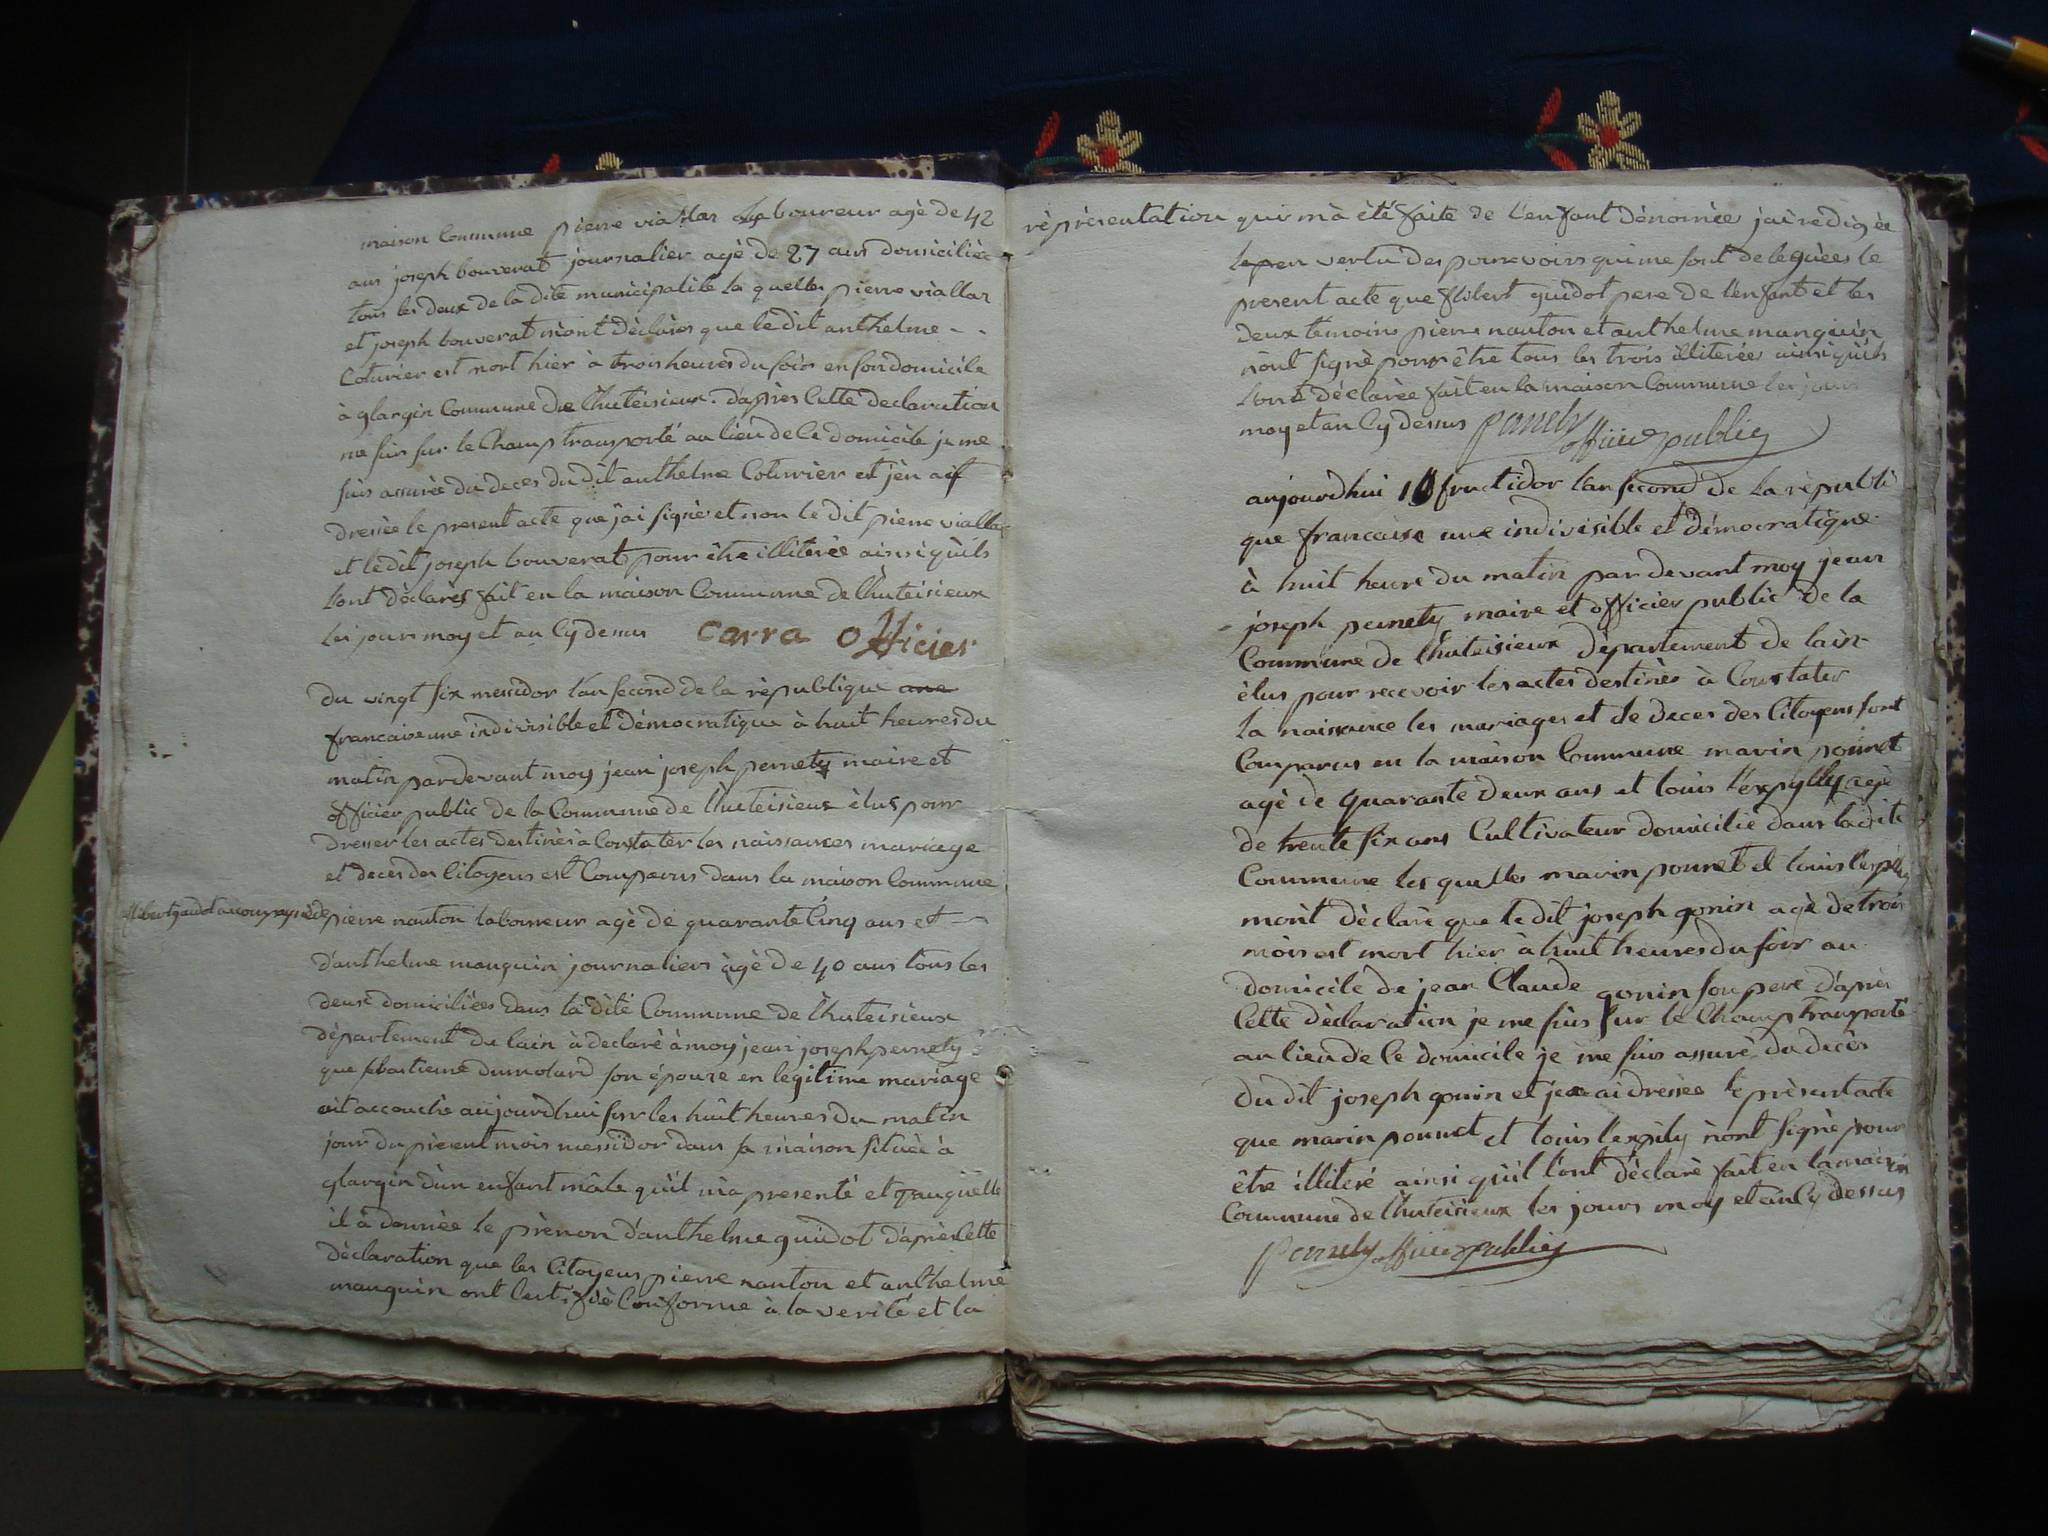 maison Commune pierre viallar laboureur agè de 42
ans joseph bouverat journalier agè de 27 ans domiciliée
tous les deux de la dite municipalité la quelles pierre viallar
et joseph bouverat m'ont dèclarès que le dit anthelme - -
Coturier est mort hier à trois heures du soir en son domicile
à glargin Commune de lhuteisieux. d'après Cette declaration
me suis sur le Champ transporté au lieu de Ce domicile je me
suis assurèe du deces du dit anthelme Coturrier et j'en ai
dressèe le present acte que j'ai signè et non le dit pierre viallar
et le dit joseph bouverat pour être illiterèe ainsi qu'ils
l'ont dèclarès fait en la maison Commune de lhuteisieux
les jours moy et an Cy dessus Carra officier
du vingt six messidor l'an second de la rèpublique une
francaise une indivisible et dèmocratique à huit heures du
matin pardevant moy jean joseph pernety maire et
officier public de la Commune de lhuteisieux èlus pour
dresser les actes destinès à Constater les naissances mariage
et deces des Citoyens est Comparus dans la maison Commune
flibert guidot accompagnè de pierre nauton laboureur agè de quarante Cinq ans et
d'anthelme manguin journaliers àgè de 40 ans tous les
deux domiciliées dans la dite Commune de lhuteisieux
département de lain à declarè à moy jean joseph pernety
que sbastienne dumolard son épouze en legitime mariage
est accouchè aujourdhui sur les huit heures du matin
jour du prèsent mois messidor dans sa maison située à
glargin d'un enfant mâle qu'il m'a presenté et auquelle
il à donnèe le prènon d'anthelme guidot d'après Cette
dèclaration que les Citoyens pierre nauton et anthelme
manguin ont Certifiè Conforme à la verité et la
rèprèsentation qui m'à été faite de l'enfant dénomèe j'ai redigèe
en vertu des pourevoirs qui me sont delequèes le
present acte que flibert guidot pere de l'enfant et les
deux temoins pierre nauton et anthelme manguin
n'ont signè pour être tous les trois illiterée ainsi qu'ils
l'ont déclarèe fait en la maison Commune les jours
moy et an Cy dessus pernety officier public
aujourdhui 10 fructidor l'an second de la rèpubli
que francaise une indivisible et démocratique
à huit heure du matin par devant moy jean
joseph pernety maire et officier public de la
Commune de lhuteisieux département de lain
élus pour recevoir les actes destinès à Constater
la naissance les mariages et de deces des Citoyens sont
Comparus en la maison Commune marin ponnet
agè de quarante deux ans et louis l'expilly agè
de trente six ans Cultivateur domicilié dans la dite
Commune les quelles marin ponnet et louis l'expily
m'ont dèclarè que le dit joseph gonin agè de trois
mois est mort hier à huit heures du soir au
domicile de jean Claude gonin son pere d'après
Cette dèclaration je me suis sur le Champ transporté
au lieu de Ce domicile je me suis assurè du decès
du dit joseph gonin et j'en ai dressèe le prèsent acte
que marin ponnet et louis l'expily n'ont signè pour
être illiteré ainsi qu'il l'ont déclarè fait en la maison
Commune de lhuteisieux les jours moy et an Cy dessus
pernety officier public